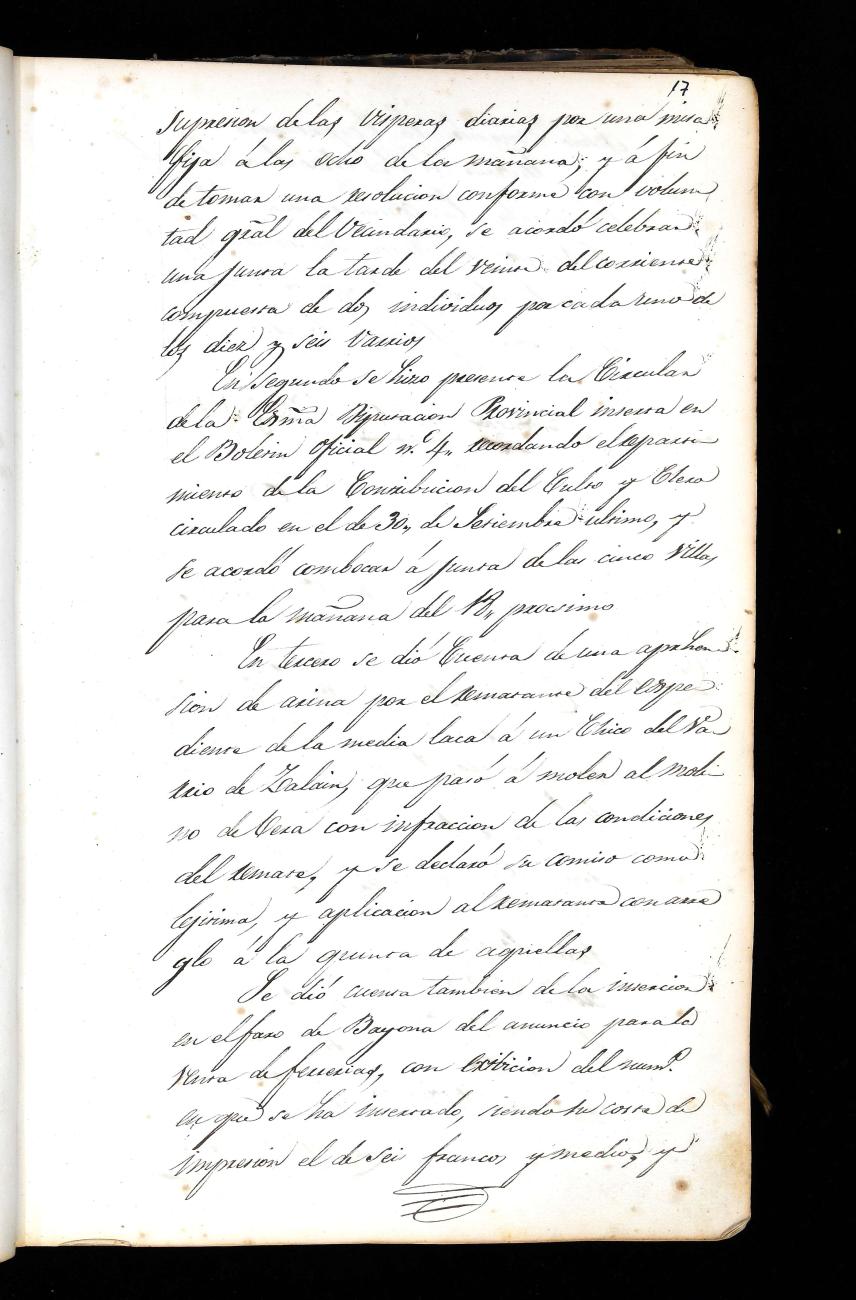 17
supresion de las visperas diarias por una misa
fija á las ocho de la mañana, y á fin
de tomar una resolucion conforme con volun
tad gral del Vecindario, se acordó celebrar
una junta la tarde del veinte del corriente
compuesta de dos individuos por cada uno de
los diez y seis Varrios
En segundo se hizo presente la Circular
de la Exma Diputacion Provincial inserta en
el Boletin Oficial n.º 4,, recordando el reparti
miento de la Contribucion del Culto y Clero
circulado en el de 30,, de Setiembre ultimo, y
se acordó combocar á junta de las cinco Villas
para la mañana del 18,, procsimo
En tercero se dió Cuenta de una aprhen
sion de arina por el rematante del expe
diente de la media laca á un Chico del Va
rrio de Zalain, que pasó á moler al moli
no de Vera con infraccion de las condiciones
del remate, y se declaró su comiso como
lejitima, y aplicacion al rematante con arre
glo á la quinta de aquellas
Se dió cuenta tambien de la insercion
en el faro de Bayona del anuncio para la
venta de ferrerias, con exibicion del num.º
en que se ha insertado, siendo su coste de
impresion el de seis francos y medio, y